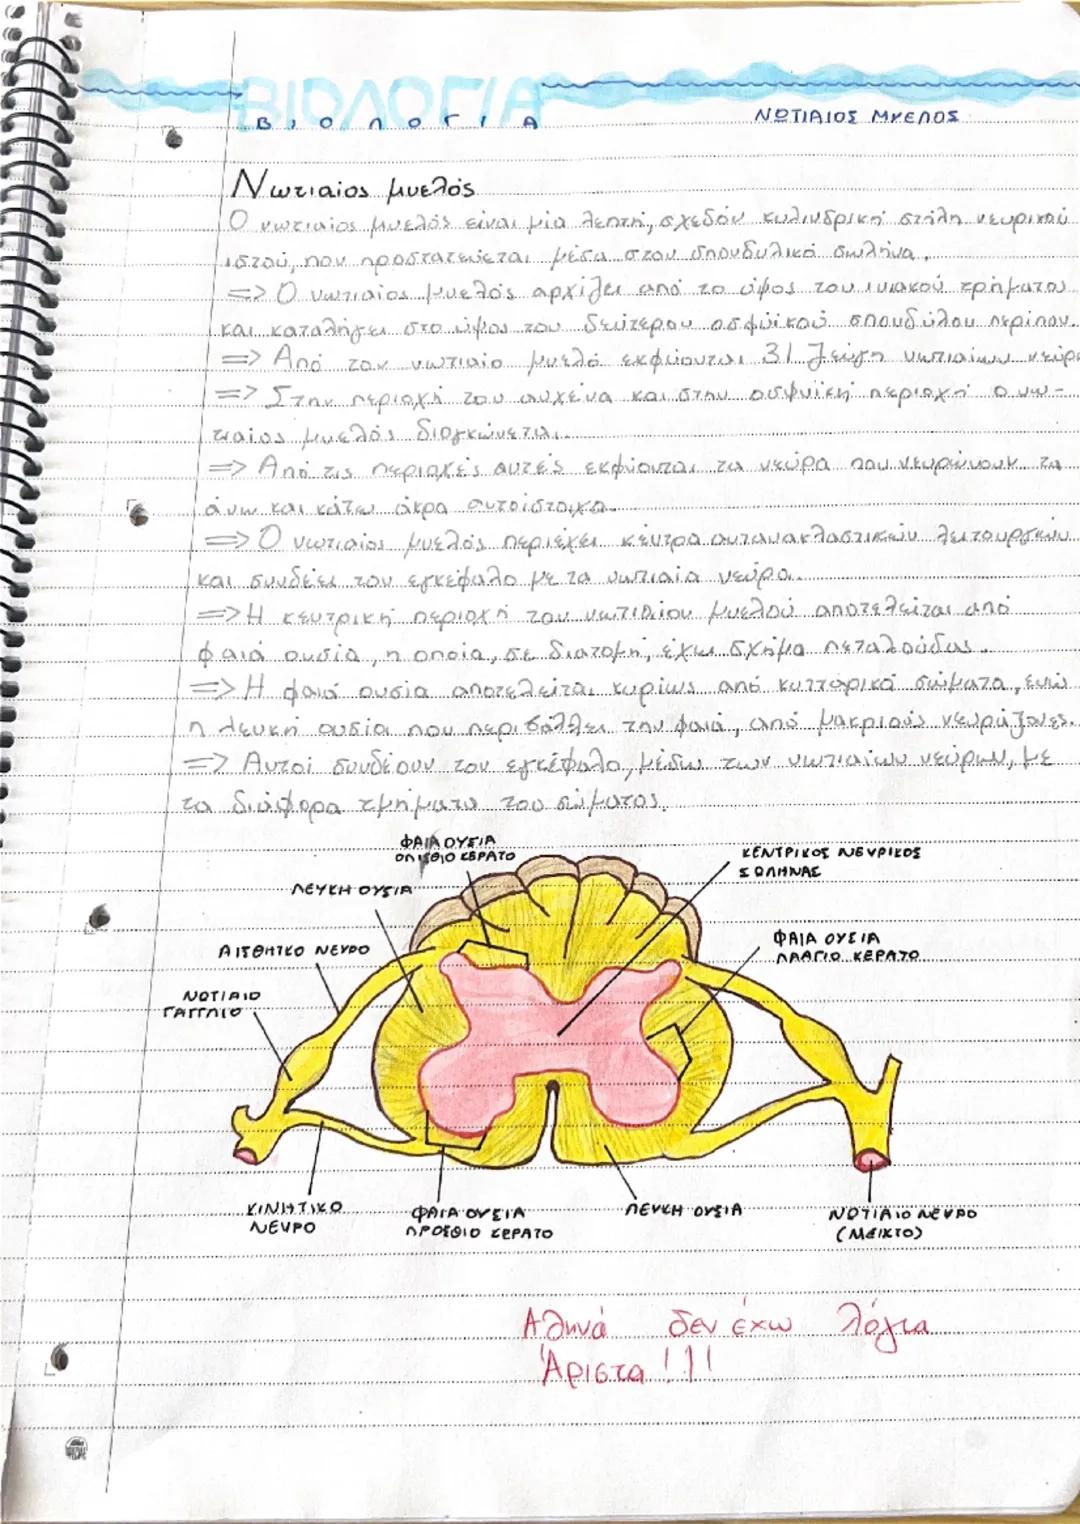 ΒΙΟΛΟΓΙΑ
ΒΙΟΛΟΓΙΑ
ΝΩΤΙΑΙΟΣ ΜΥΕΛΟΣ
Νωτιαίος μυελός
Ο νωτιαίος μυελός είναι μία λεπτή, σχεδόν κυλινδρική στήλη νευρικού
ιστού, που προστατεύεται μέσα στον σπονδυλικό σωλήνα.
=> Ο νωτιαίος μυελός αρχίζει από το ύψος του ινιακού τρήματος
και καταλήγει στο ύψος του δεύτερου οσφυϊκού σπονδύλου περίπου.
=> Από τον νωτιαίο μυελό εκφύονται 31 ζεύγη νωτιαίων νεύρ
=> Στην περιοχή του αυχένα και στην οσφυϊκή περιοχή ο νω-
τιαίος μυελός διογκώνεται.
=> Από τις περιοχές αυτές εκφύονται τα νεύρα που νευρώνουν τα
άνω και κάτω άκρα αντοίστοιχα.
=> Ο νωτιαίος μυελός περιέχει κέντρα αντανακλαστικών λειτουργιών
και συνδέει τον εγκέφαλο με τα νωτιαία νεύρα.
=> Η κεντρική περιοχή του νωτιαίου μυελού αποτελείται από
φαιά ουσία, η οποία, σε διατομή, έχει σχήμα πεταλούδας.
=> Η φαιά ουσία αποτελείται κυρίως από κυτταρικά σώματα, ενώ
η λευκή ουσία που περιβάλλει την φαιά, από μακριούς νευράξονες.
=> Αυτοί συνδέουν τον εγκέφαλο, μέσω των νωτιαίων νεύρων, με
τα διάφορα τμήματα του σώματος.
ΦΑΙΑ ΟΥΣΙΑ
ΟΠΙΣΘΙΟ ΚΕΡΑΤΟ
ΚΕΝΤΡΙΚΟΣ ΝΕΥΡΙΚΟΣ
ΣΩΛΗΝΑΣ
ΛΕΥΚΗ ΟΥΣΙΑ
ΦΑΙΑ ΟΥΣΙΑ
ΠΛΑΓΙΟ ΚΕΡΑΤΟ
ΑΙΣΘΗΤΚΟ ΝΕΥΡΟ
ΝΩΤΙΑΙΟ
ΓΑΓΓΛΙΟ
ΚΙΝΗΤΙΚΟ
ΝΕΥΡΟ
ΦΑΙΑ ΟΥΣΙΑ
ΠΡΟΣΘΙΟ ΚΕΡΑΤΟ
ΛΕΥΚΗ ΟΥΣΙΑ
ΝΩΤΙΑΙΟ ΝΕΥΡΟ
(ΜΕΙΚΤΟ)
Αθηνά δεν έχω λόγια
Άριστα!!!